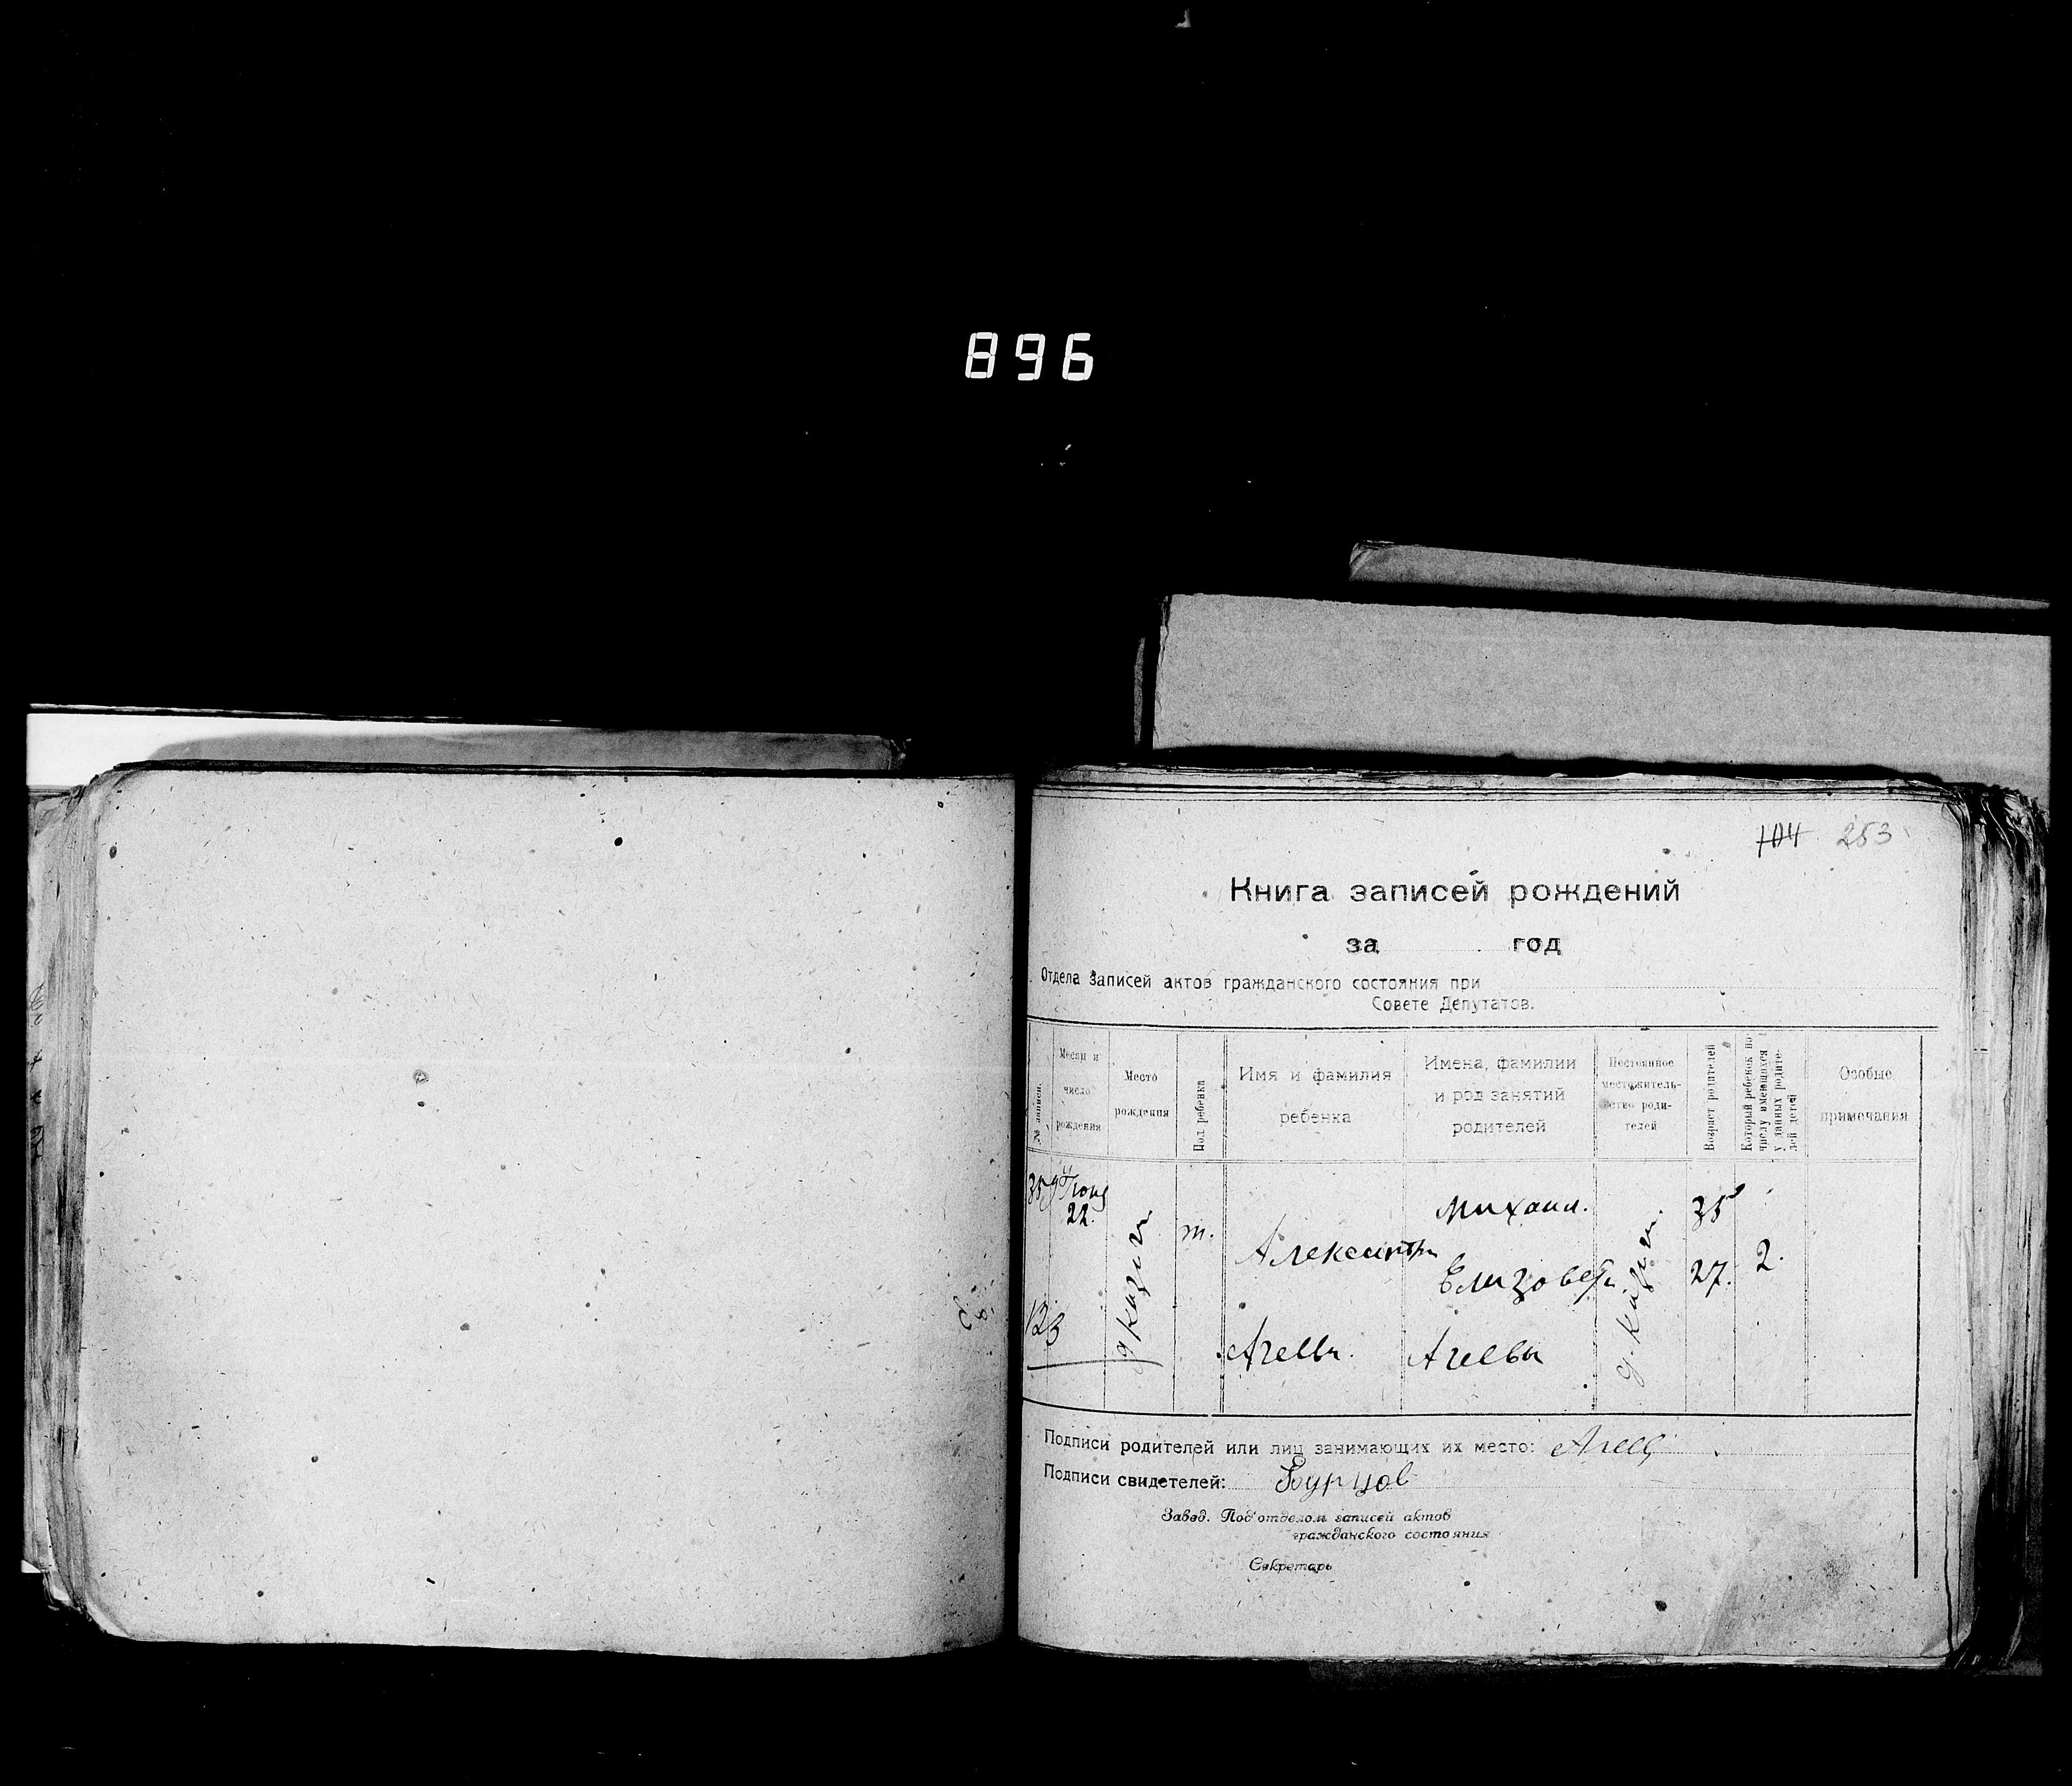 896
104 253
Книга записей рождений
за год
Отдела записей актов гражданского состояния при
Совете Депутатов.
№ записи.
Месяц и
число
рождения
Место
рождения
Пол ребенка
Имя и фамилия
ребенка
Имена, фамилии
и род занятий
родителей
Постоянное
местожитель-
ство роди-
телей
Возраст родителей
Который ребенок по
числу имеющихся
у данных родите-
лей детей
Особые
примечания
22.
123
m.
Александръ
Михаил.
Елизовета
35
27.
2.
Подписи родителей или лиц занимающих их место:
Подписи свидетелей: Бурцов
Завед. Подотделом записей актов
гражданского состояния
Секретарь